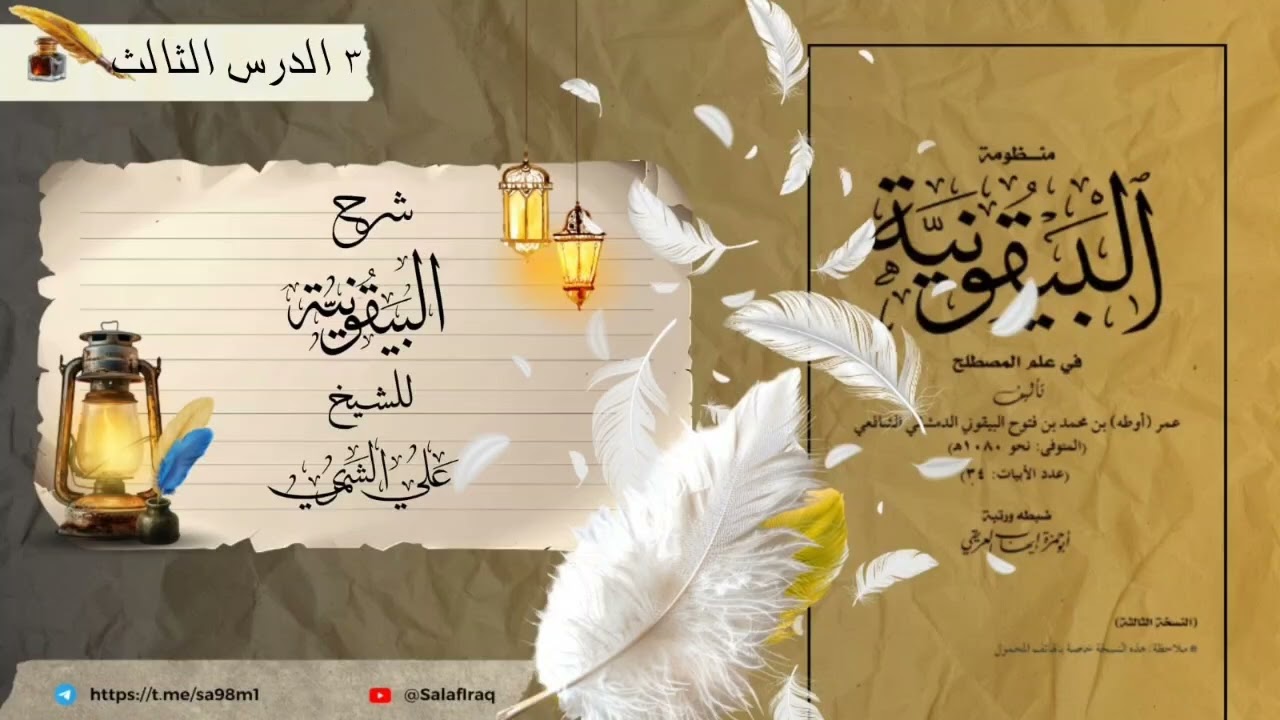 ٣ الدرس الثالث
شرح
البيقونية
للشيخ
علي الشمري
منظومة
البيقونية
في علم المصطلح
تأليف
عمر (أوطه) بن محمد بن فتوح البيقوني الدمشقي الشافعي
(المتوفى: نحو ١٠٨٠هـ)
(عدد الأبيات: ٣٤)
ضبطه ورتبه
أبو حمزة إيهاب العريقي
(النسخة الثالثة)
* ملاحظة: هذه النسخة خاصة بالهاتف المحمول
https://t.me/sa98m1
@SalafIraq